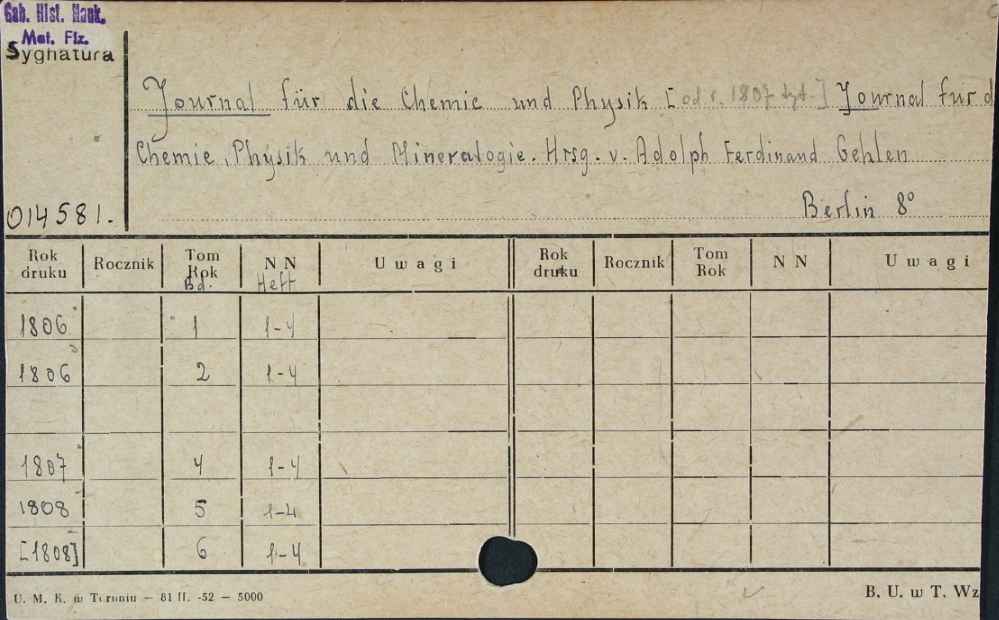 Gab. Hist. Nauk.
Mat. Fiz.
Sygnatura
Journal für die Chemie und Physik [od r. 1807 tyt.] Journal fur d
Chemie, Physik und Mineralogie. Hrsg. v. Adolph Ferdinand Gehlen
014581. Berlin 8°
Rok druku Rocznik Tom Rok Bd. NN Heft Uwagi Rok druku Rocznik Tom Rok NN Uwagi
1806 1 1-4
1806 2 1-4
1807 4 1-4
1808 5 1-4
[1808] 6 1-4
U. M. K. w Toruniu — 81 II. -52 — 5000 B. U. w T. Wz